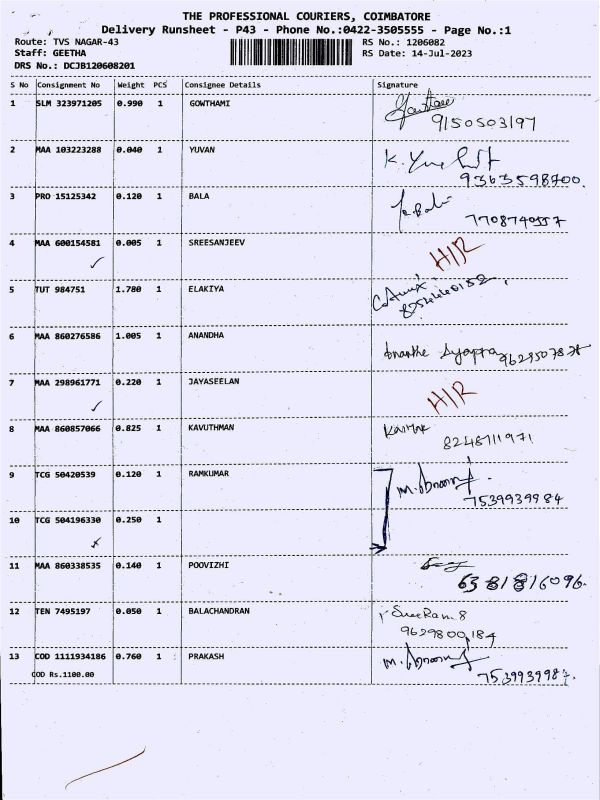 THE PROFESSIONAL COURIERS, COIMBATORE
Delivery Runsheet - P43 - Phone No.:0422-3505555 - Page No.:1
Route: TVS NAGAR-43 RS No.: 1206082
Staff: GEETHA RS Date: 14-Jul-2023
DRS No.: DCJB120608201
S No Consignment No Weight PCS Consignee Details Signature
1 SLM 323971205 0.990 1 GOWTHAMI
9150503197
2 MAA 103223288 0.040 1 YUVAN
9363598700.
3 PRO 15125342 0.120 1 BALA
7708740557
4 MAA 600154581 0.005 1 SREESANJEEV H/R
5 TUT 984751 1.780 1 ELAKIYA
6 MAA 860276586 1.005 1 ANANDHA
7 MAA 298961771 0.220 1 JAYASEELAN H/R
8 MAA 860857066 0.825 1 KAVUTHMAN
8248711971
9 TCG 50420539 0.120 1 RAMKUMAR
7539939984
10 TCG 504196330 0.250 1
11 MAA 860338535 0.140 1 POOVIZHI
6381816096.
12 TEN 7495197 0.050 1 BALACHANDRAN
9629800184
13 COD 1111934186 0.760 1 PRAKASH
COD Rs.1100.00 7539939987.